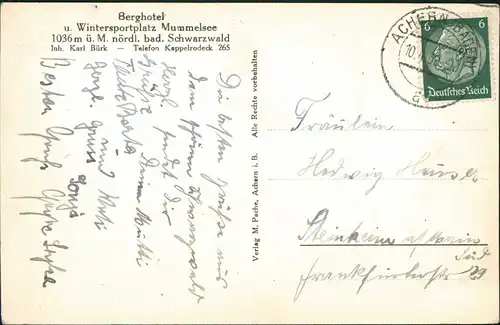 Berghotel
u. Wintersportplatz Mummelsee
1036 m ü. M. nördl. bad. Schwarzwald
Inh. Karl Bürk — Telefon Kappelrodeck 265
Die besten Grüße aus
dem schönen Schwarzwald
sendet Dir
Deine Mutti
Herzl.
Grüße
Tante Berta
Herzl. Gruss
und Kuß
Besten Gruß
Verlag M. Pache, Achern i. B.
Alle Rechte vorbehalten
ACHERN (BADEN)
10.
a
6 6
Deutsches Reich
Fräulein
Hedwig Heuser
Steinheim a/Main
Frankfurterstr 29